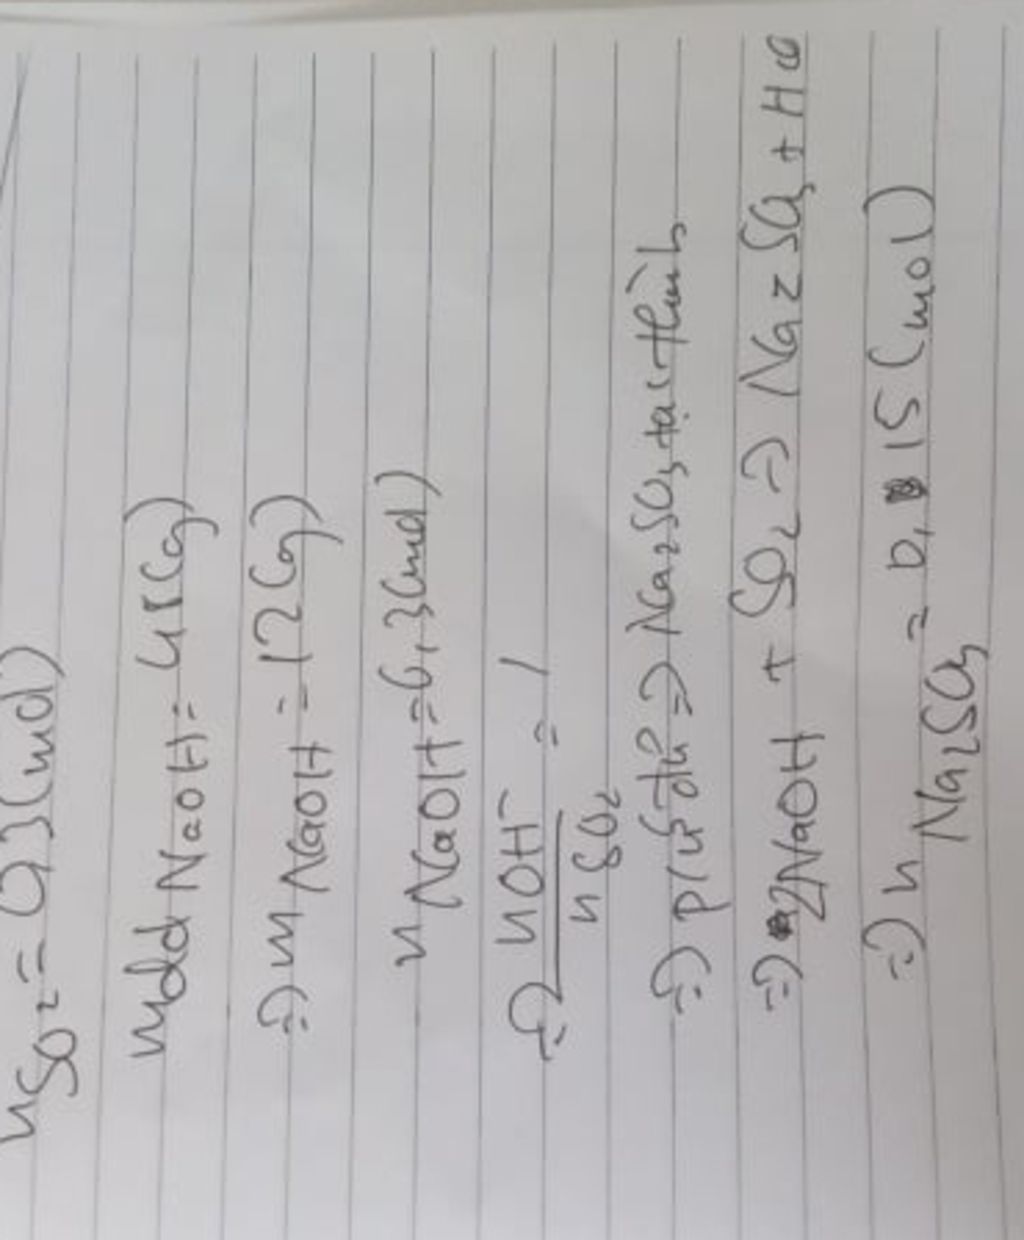 nSO2 = 0,3 (mol)
mdd NaOH = 48 (g)
=> m NaOH = 12 (g)
n NaOH = 0,3 (mol)
=> nOH- / nSO2 = 1
=> pứ đủ => Na2SO3 tạo thành
=> 2NaOH + SO2 => Na2SO3 + H2O
=> n Na2SO3 = 0,15 (mol)